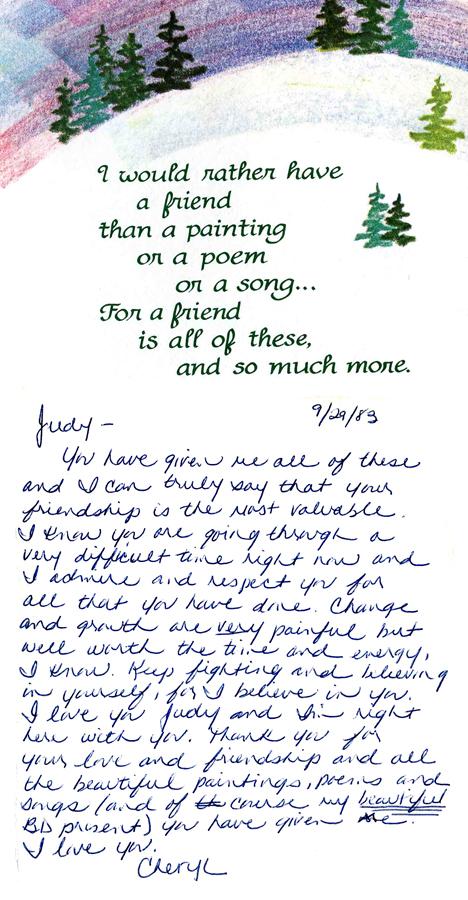 I would rather have
a friend
than a painting
or a poem
or a song...
For a friend
is all of these,
and so much more.
9/29/83
Judy -
You have given me all of these
and I can truly say that your
friendship is the most valuable.
I know you are going through a
very difficult time right now and
I admire and respect you for
all that you have done. Change
and growth are very painful but
well worth the time and energy,
I know. Keep fighting and believing
in yourself, for I believe in you.
I love you Judy and I'm right
here with you. Thank you for
your love and friendship and all
the beautiful paintings, poems and
songs (and of course my beautiful
BD present) you have given me.
I love you.
Cheryl